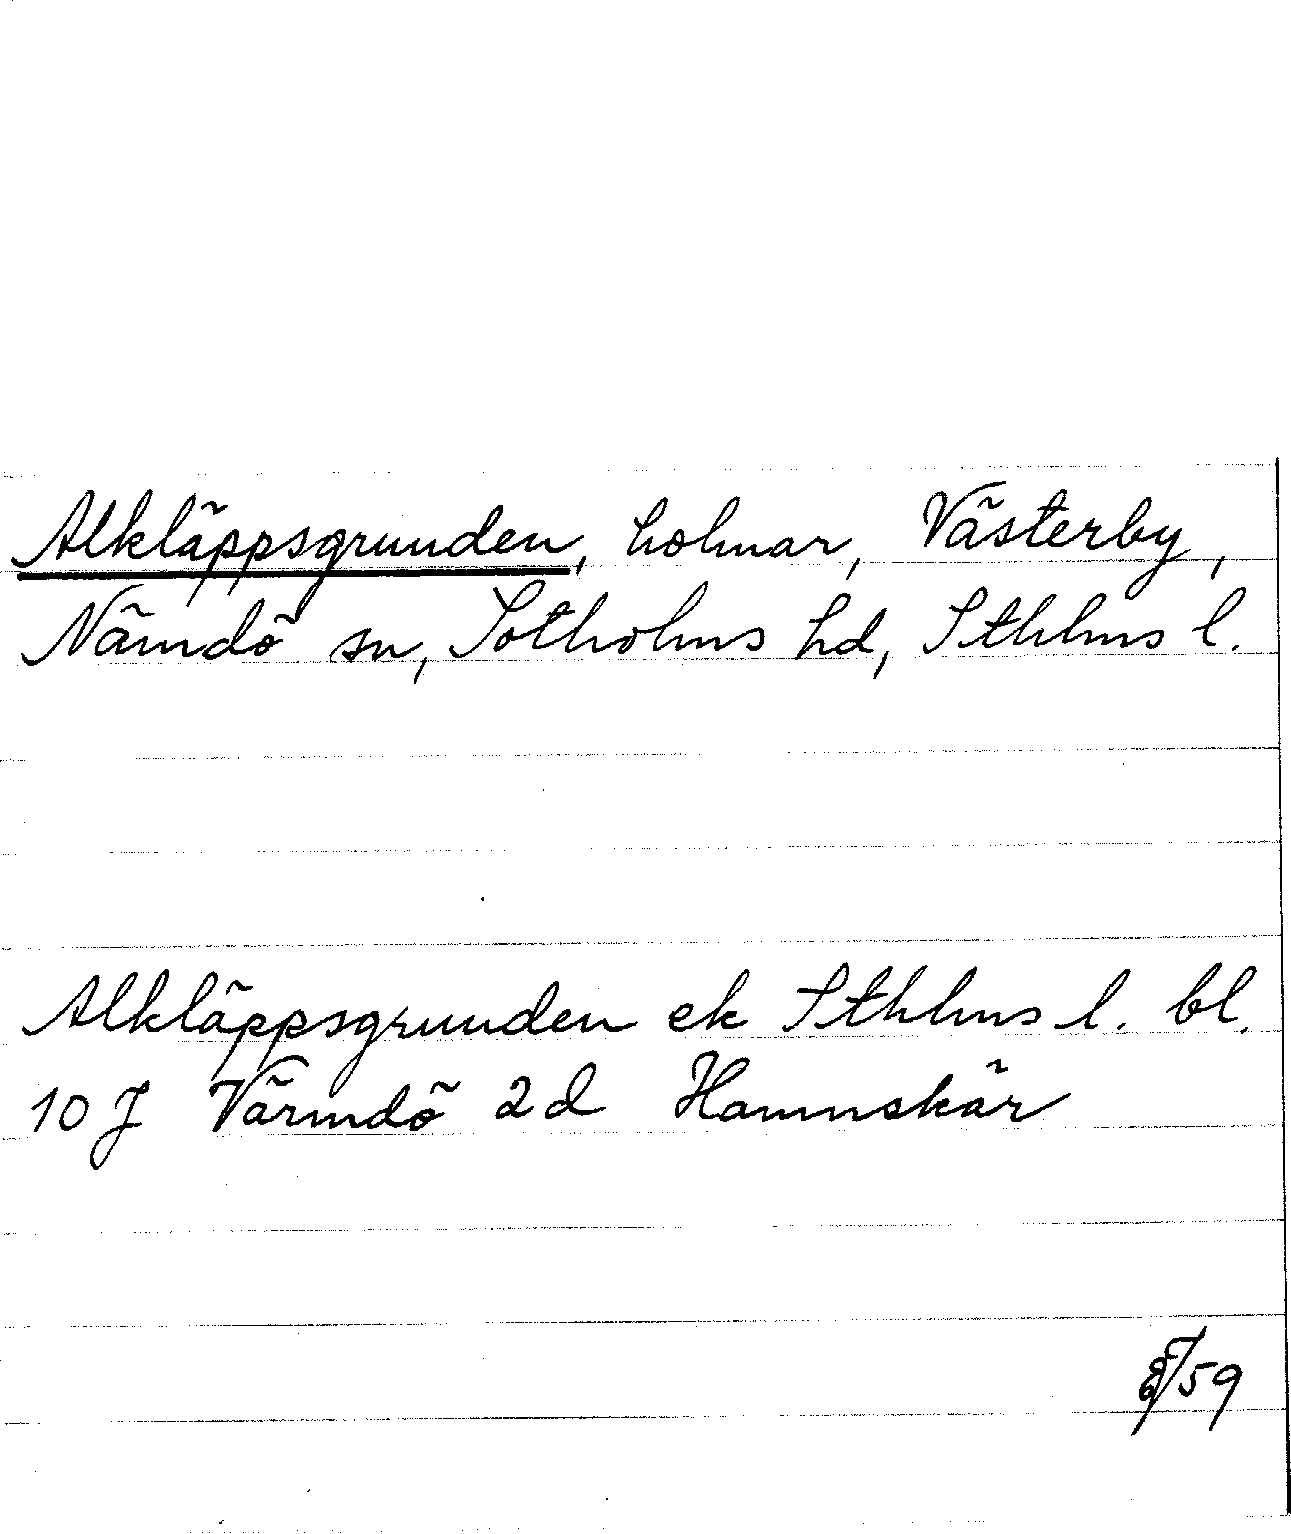 Alkläppsgrunden, holmar, Västerby,
Nämdö sn, Sotholms hd, Sthlms l.
Alkläppsgrunden ek Sthlms l. bl.
10 J Värmdö 2d Hamnskär
/59